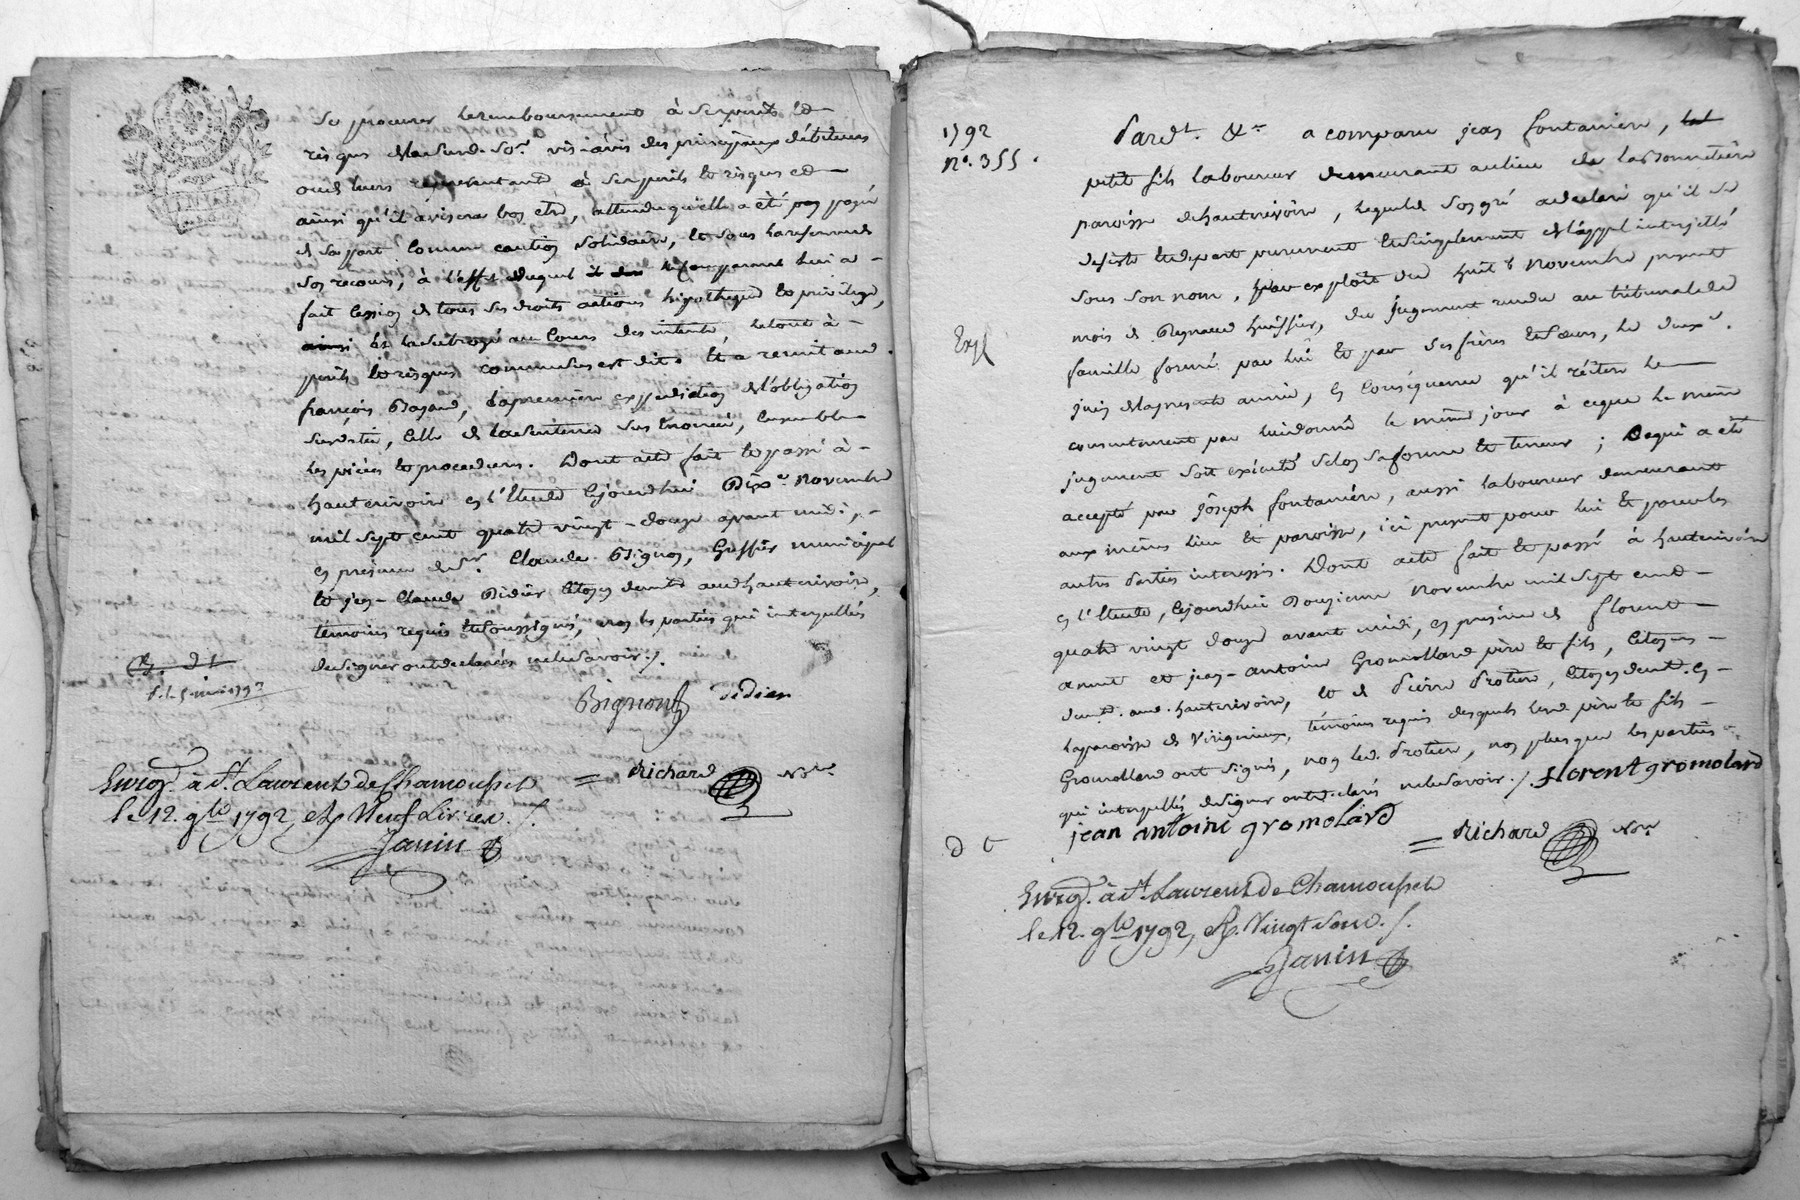 se procurer le remboursement à ses perils et
risques de lad. so.e vis-à-vis des principaux débiteurs
ou de leurs représentants à ses perils et risques et
ainsi qu'il avisera bon etre, attendu qu'elle a été payée
de sa part comme caution solidaire, et sous la réserve de
son recours, à l'effet duquel le comparant lui a
fait cession de tous ses droits actions hipotheques et privileges,
et l'a subrogé au cours des intérêts le tout à
perils et risques comme dessus est dit. Et a remit aud.
françois Bazand, la première expédition de l'obligation
susdatée, celle de la sentence sus énoncée, ensemble
les pièces et procedures. Dont acte fait et passé à
hauterivoire en l'Etude cejourdhui Dix.e novembre
mil sept cent quatre vingt-douze avant midi,
en présence de S.r Claude Bignon, Greffier municipal
et jean-Claude Didier Citoyen demt aud. hauterivoire,
témoins requis et soussignés, non les parties qui interpellés
de signer ont declarés ne le savoir ./.
Bignon Didier
= Richard Nore
Enreg. à St. Laurent de Chamousset
le 12. 9bre 1792, R. Neuf Livres ./.
Janin
1792
N°. 355.
Pardt. &a a comparu jean fontaniere,
petit fils laboureur demeurant au lieu de la Bonnetière
paroisse de hauterivoire, lequel de son gré a declaré qu'il se
desiste et depart purement et simplement de l'appel interjetté
sous son nom, par exploit du huit novembre present
mois de Reynaud huissier, du jugement rendu au tribunal de
famille formé par lui et par ses frères et sœurs, le deux
juin de la presente année, en conséquence qu'il réitere le
consentement par lui donné le même jour à ce que le même
jugement soit exécuté selon sa forme et teneur ; Ce qui a été
accepté par joseph fontanière, aussi laboureur demeurant
aux mêmes lieu et paroisse, ici present pour lui et pour les
autres parties interessées. Dont acte fait et passé à hauterivoire
en l'Etude, cejourdhui Douzieme novembre mil sept cent
quatre vingt douze avant midi, en présence de florent
et jean-antoine Gromollard père et fils, Citoyens
demt. aud. hauterivoire, et de Pierre Protière, Citoyen demt. en
la paroisse de Virigneux, témoins requis desquels lesd. père et fils
Gromollard ont signés, non led. Protière, non plus que les parties
qui interpellés de signer ont declarés ne le savoir ./. florent gromolard
jean antoine gromolard
= Richard Nore
Enreg. à St. Laurent de Chamousset
le 12. 9bre 1792, R. Vingt sous ./.
Janin